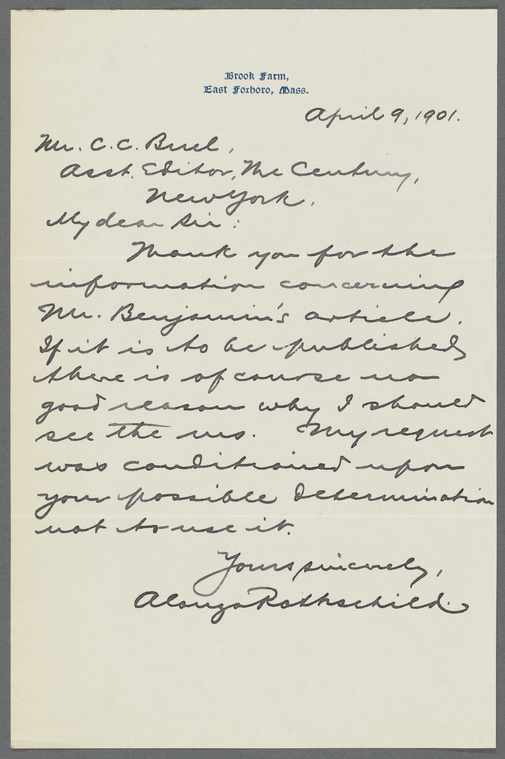 Brook Farm,
East Foxboro, Mass.
April 9, 1901.
Mr. C. C. Buel,
Asst. Editor, The Century,
New York.
My dear Sir:
Thank you for the
information concerning
Mr. Benjamin's article.
If it is to be published,
there is of course no
good reason why I should
see the ms. My request
was conditioned upon
your possible determination
not to use it.
Yours sincerely,
Alonzo Rothschild.